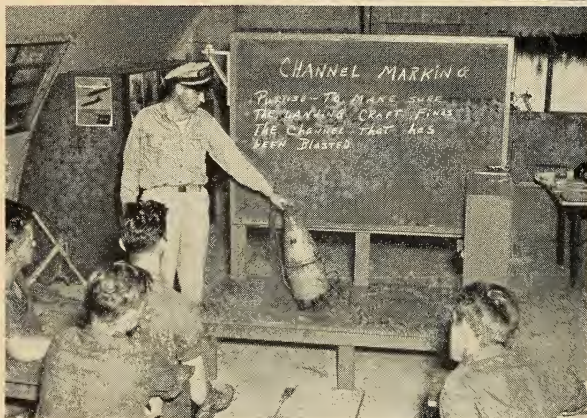 CHANNEL MARKING
PURPOSE - TO MAKE SURE
THE LANDING CRAFT FINDS
THE CHANNEL THAT HAS
BEEN BLASTED